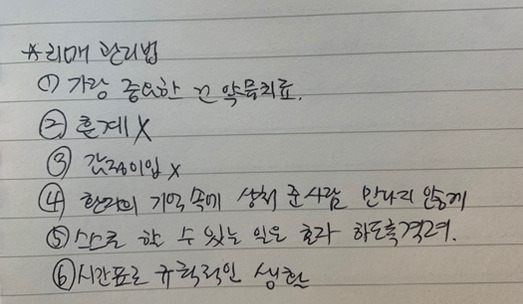 *치매 관리법
① 가장 중요한 건 약물치료.
② 훈계 X
③ 감정이입 x
④ 환자의 기억 속에 상처 준 사람 만나지 않게
⑤ 스스로 할 수 있는 일은 하도록 격려.
⑥ 시간표로 규칙적인 생활